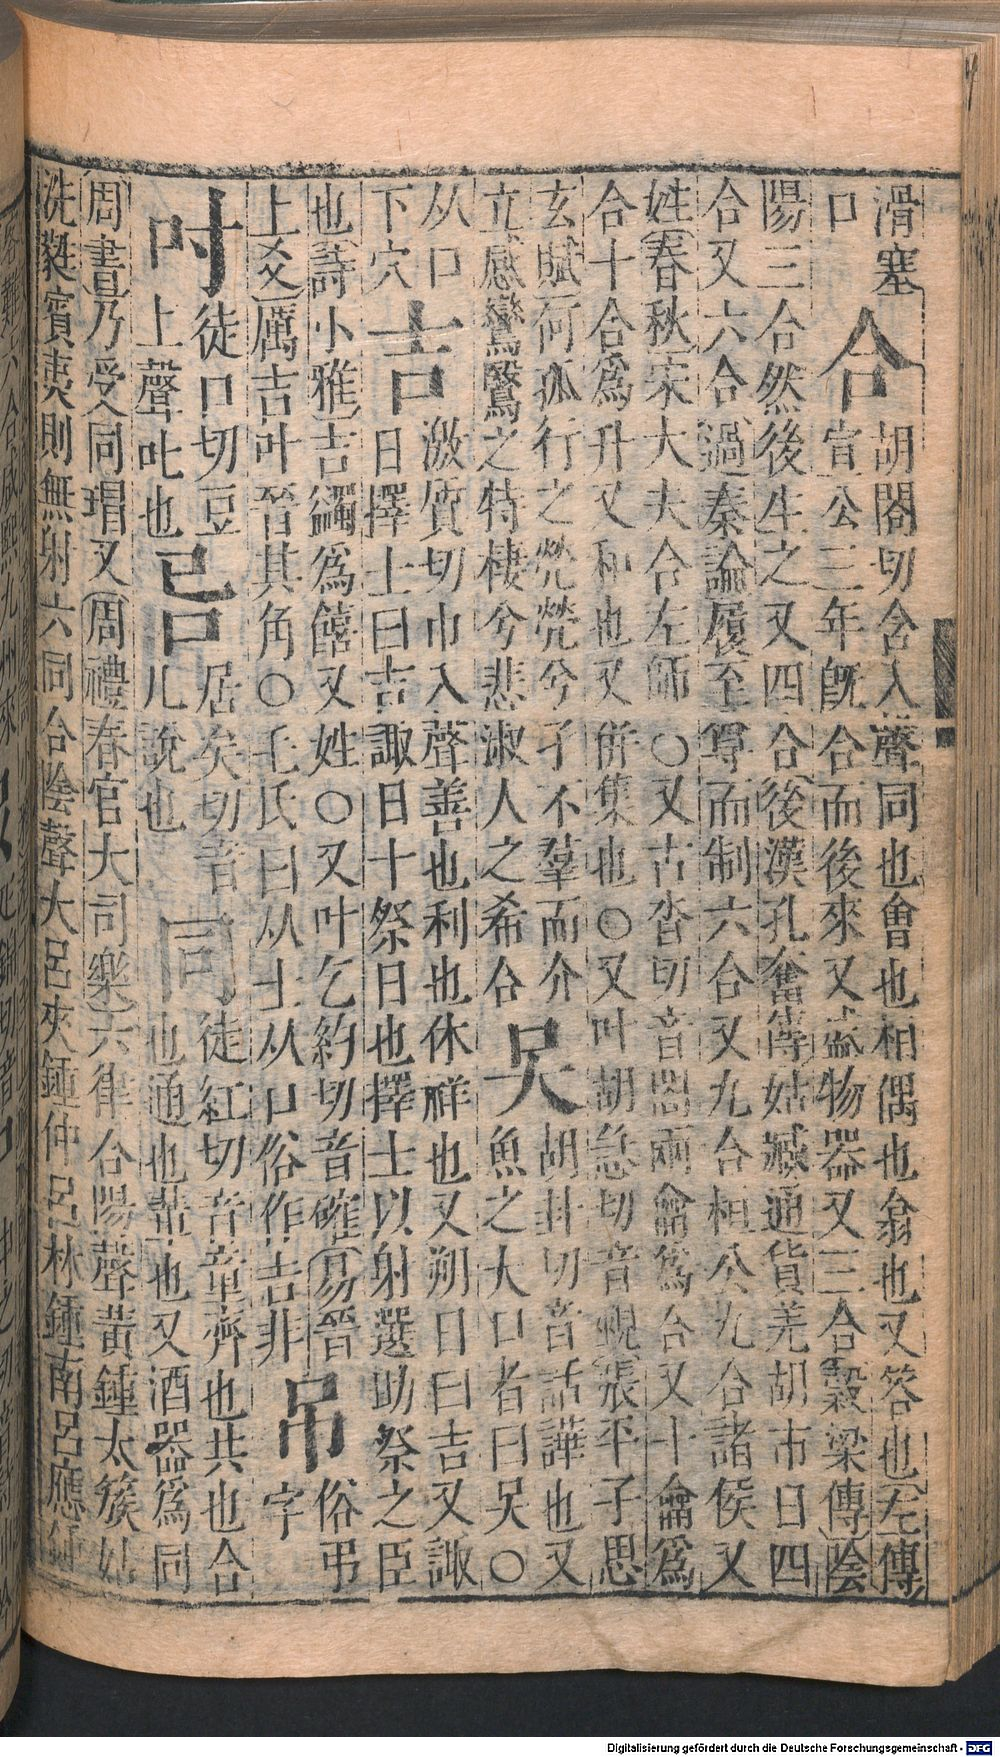 滑塞 合 胡閤切含入聲同也會也相偶也翕也又答也左傳
口 宣公三年旣合而後來又盛物器又三合穀梁傳陰
陽三合然後生之又四合後漢孔奮傳姑臧通貨羌胡市日四
合又六合過秦論履至尊而制六合又九合桓公九合諸侯又
姓春秋宋大夫合左師○又古沓切音閤兩龠爲合又十龠爲
合十合爲升又和也又併集也○又叶胡急切音覡張平子思
玄賦何孤行之煢煢兮孑不羣而介
立感鸞鷖之特棲兮悲淑人之希合
吳 胡卦切音話譁也又
魚之大口者曰吳○
从口
下穴
吉 激質切巾入聲善也利也休祥也又朔日曰吉又諏
日擇士曰吉諏日十祭日也擇士以射選助祭之臣
也詩小雅吉蠲爲饎又姓○又叶乞約切音確易晉
上爻厲吉叶晉其角○毛氏曰从士从口俗作吉非
吊 俗弔
字
吋 徒口切豆
上聲叱也
㠱 居矣切音
几說也
同 徒紅切音童齊也共也合
也通也輩也又酒器爲同
周書乃受同瑁又周禮春官大司樂六律合陽聲黃鍾太簇姑
洗蕤賓夷則無射六同合陰聲大呂夾鍾仲呂林鍾南呂應鍾
Digitalisierung gefördert durch die Deutsche Forschungsgemeinschaft - DFG